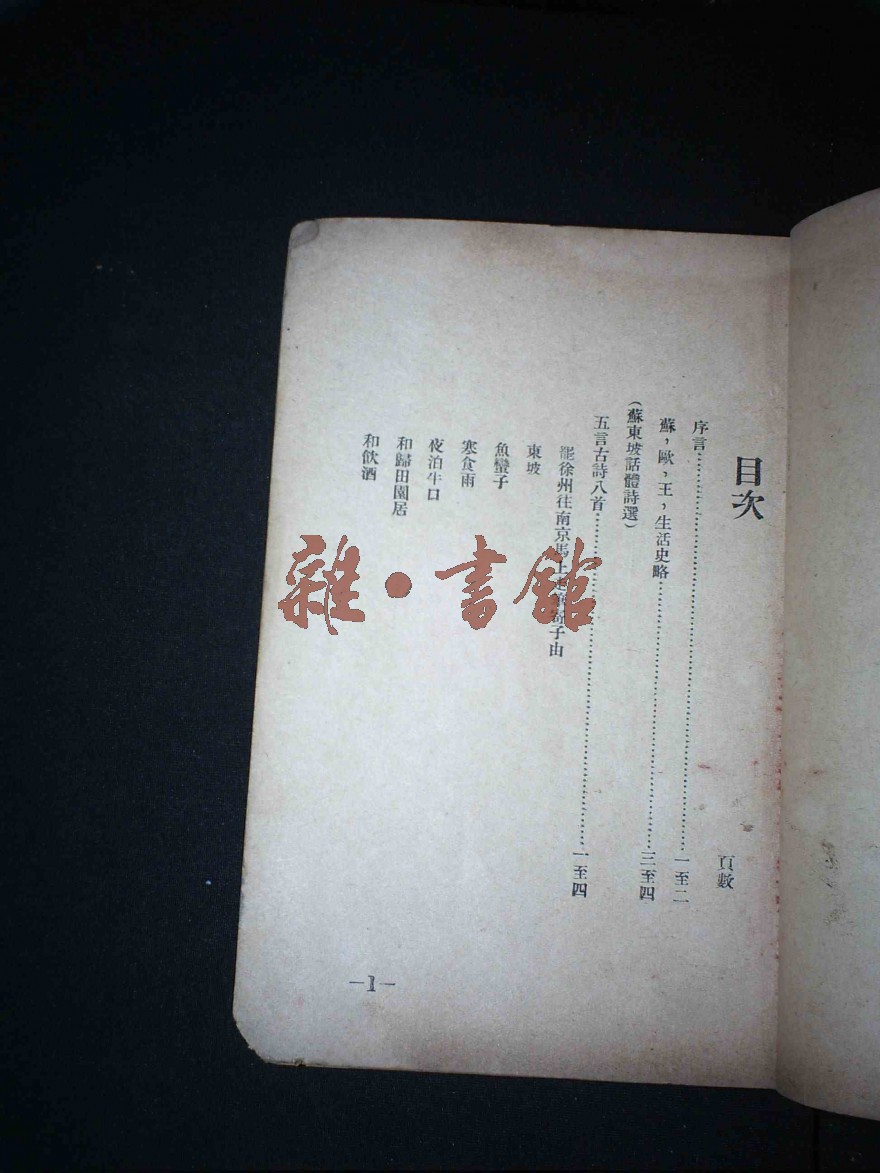 目次
頁數
序言……一至二
蘇，歐，王，生活史略……三至四
（蘇東坡話體詩選）
五言古詩八首……一至四
罷徐州往南京馬上走筆寄子由
東坡
魚蠻子
寒食雨
夜泊牛口
和歸田園居
和飲酒
—1—
雜·書館